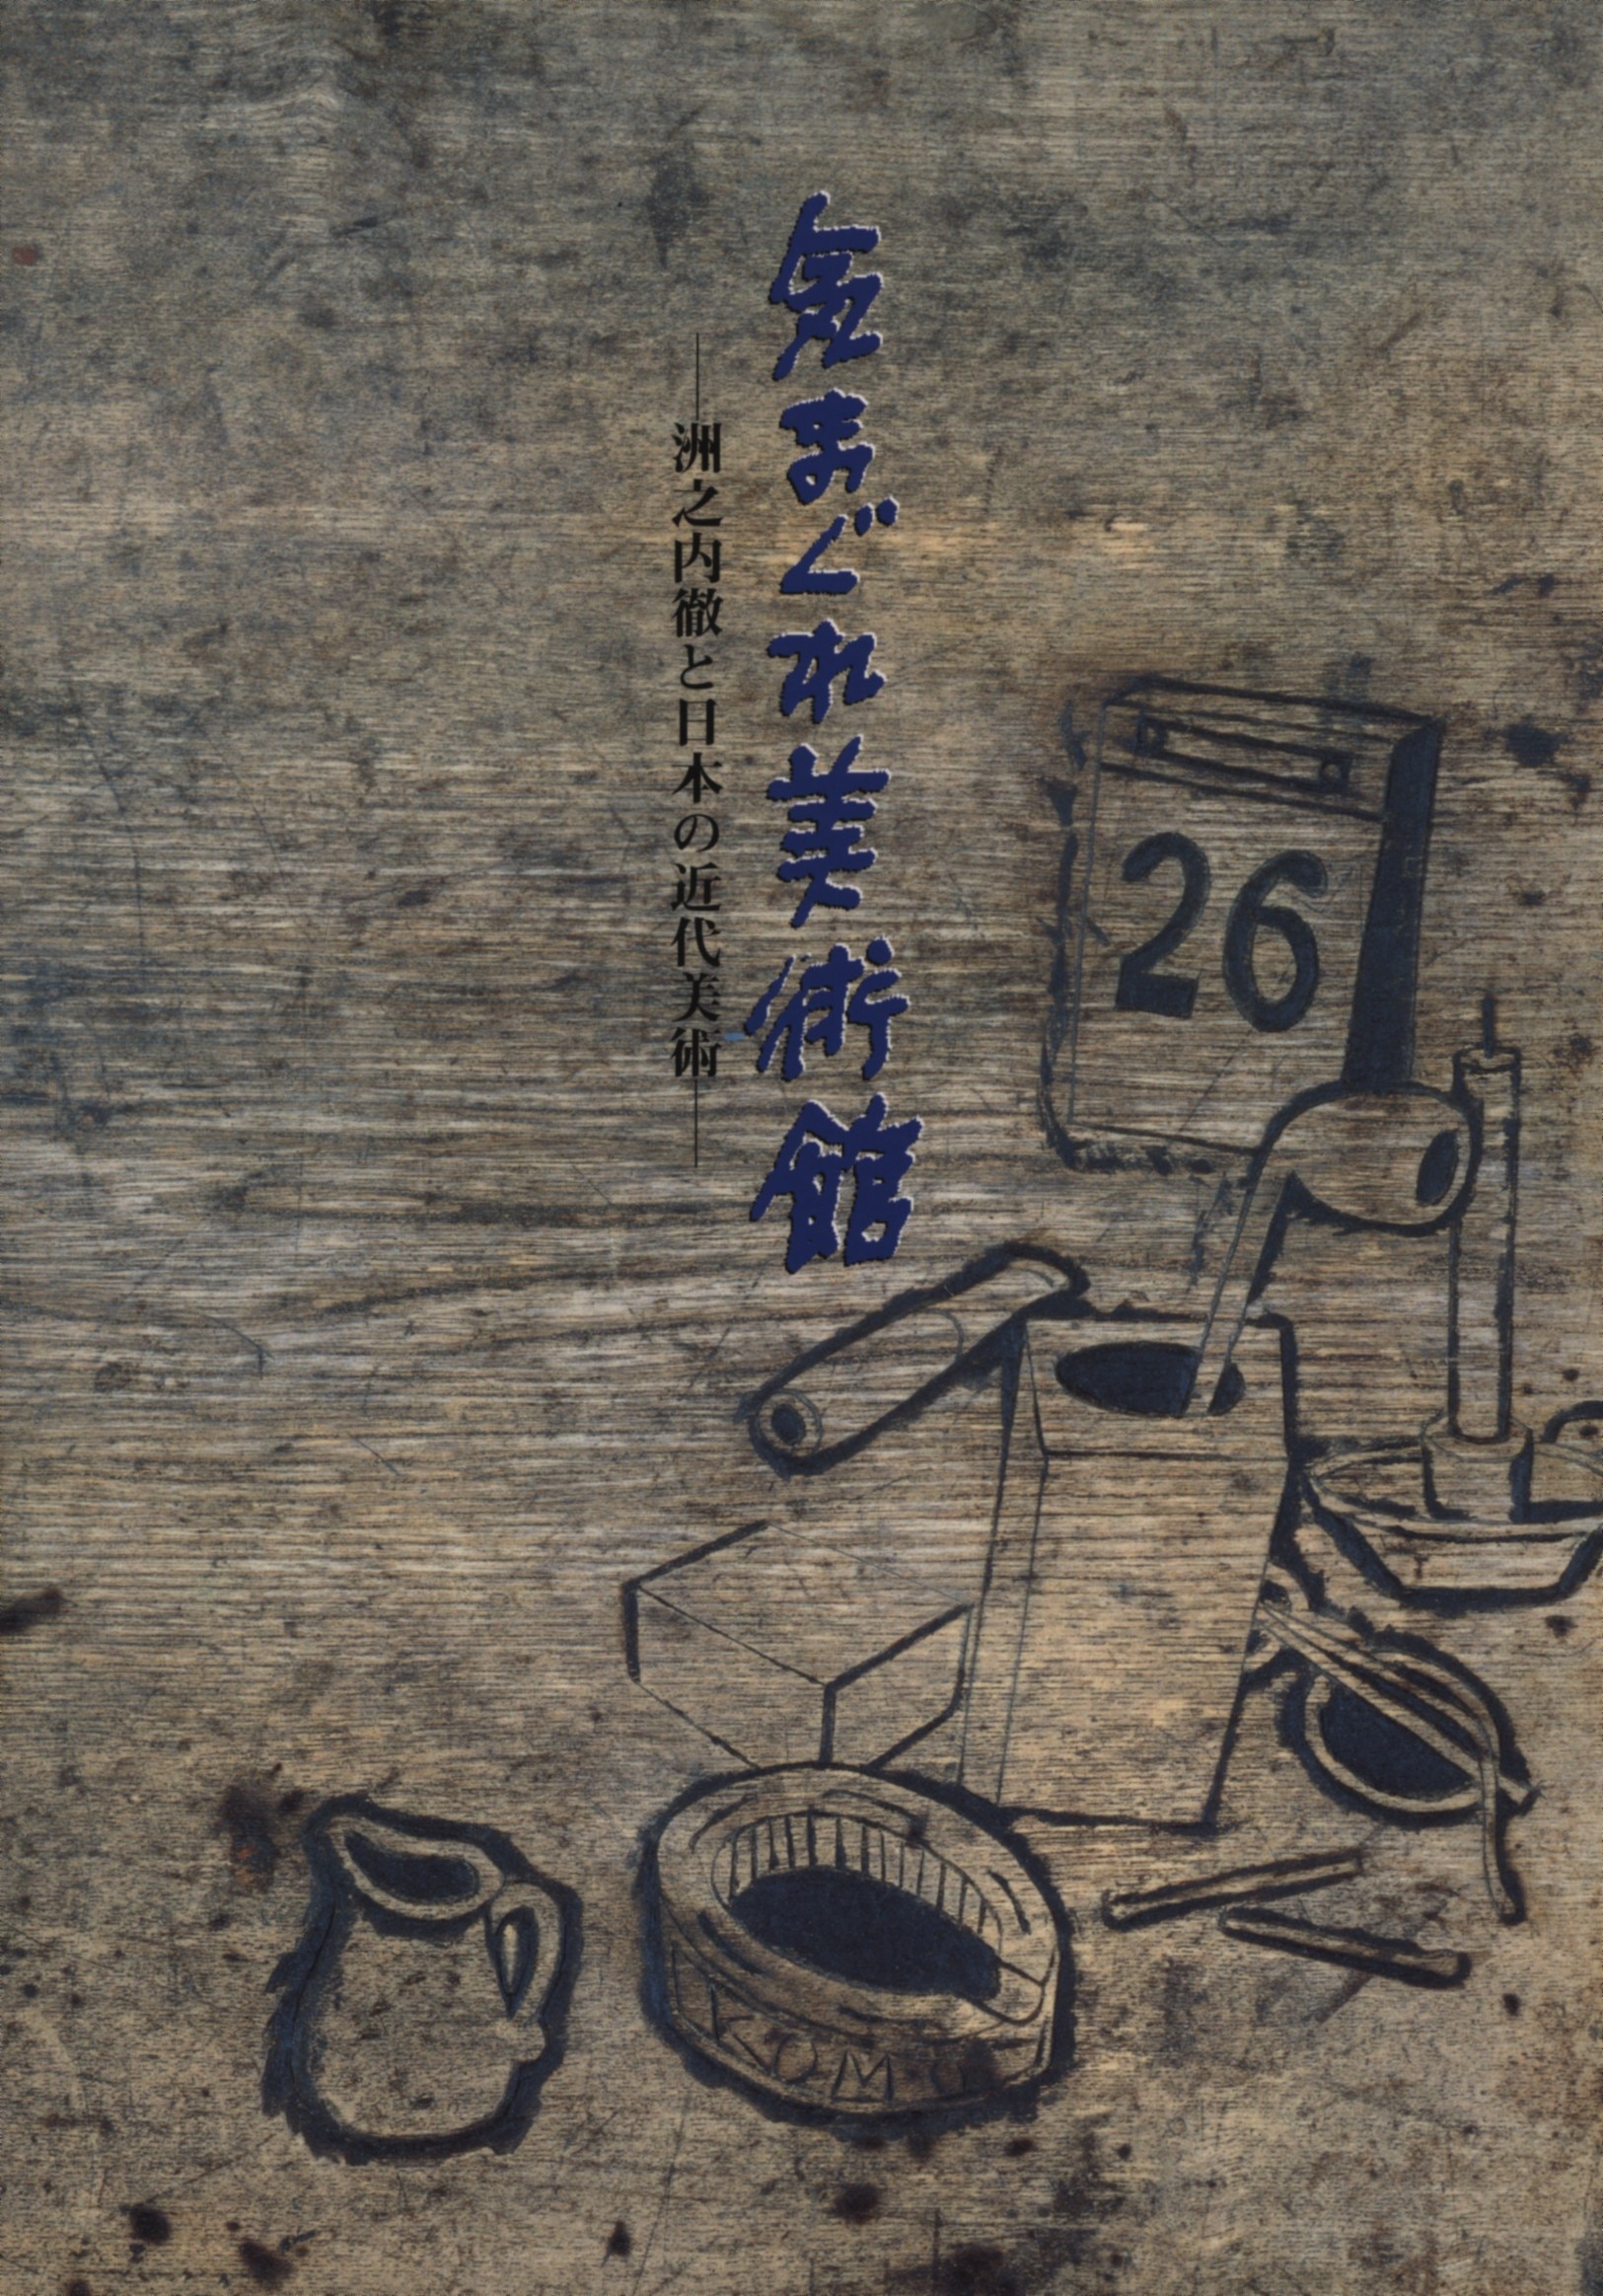 気まぐれ美術館
—洲之内徹と日本の近代美術—
26
KOMO